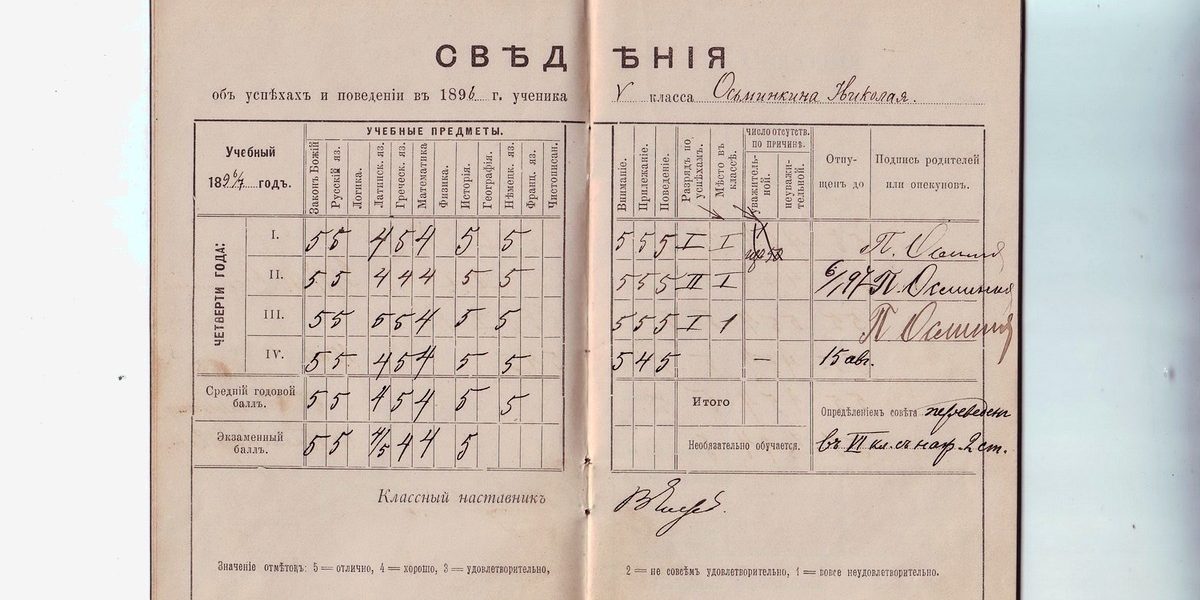 СВѢДѢНІЯ
объ успѣхахъ и поведеніи въ 1896 г. ученика V класса Осьминкина Николая.
Учебный 1896/7 годъ.
УЧЕБНЫЕ ПРЕДМЕТЫ.
Законъ Божій Русскій яз. Логика. Латинск. яз. Греческ. яз. Математика Физика. Исторія. Географія. Нѣмецк. яз. Франц. яз. Чистописан.
Вниманіе. Прилежаніе. Поведеніе. Разрядъ по успѣхамъ. Мѣсто въ классѣ.
ЧИСЛО ОТСУТСТВ. ПО ПРИЧИНѢ.
уважительной. неуважительной.
Отпущенъ до
Подпись родителей или опекуновъ.
ЧЕТВЕРТИ ГОДА:
I. 5 5 4 5 4 5 5 5 5 5 I I
II. 5 5 4 4 4 5 5 5 5 5 II I 6/I 97 П. Осминкин
III. 5 5 5 5 4 5 5 5 5 5 I 1
IV. 5 5 4 5 4 5 5 5 4 5 — 15 авг.
Средній годовой баллъ. 5 5 4 5 4 5 5
Итого
Опредѣленіемъ совѣта переведенъ
Экзаменный баллъ. 5 5 4/5 4 4 5
Необязательно обучается.
въ VI кл. съ наг. 2 ст.
Классный наставникъ
Значеніе отмѣтокъ: 5 = отлично, 4 = хорошо, 3 = удовлетворительно, 2 = не совсѣмъ удовлетворительно, 1 = вовсе неудовлетворительно.